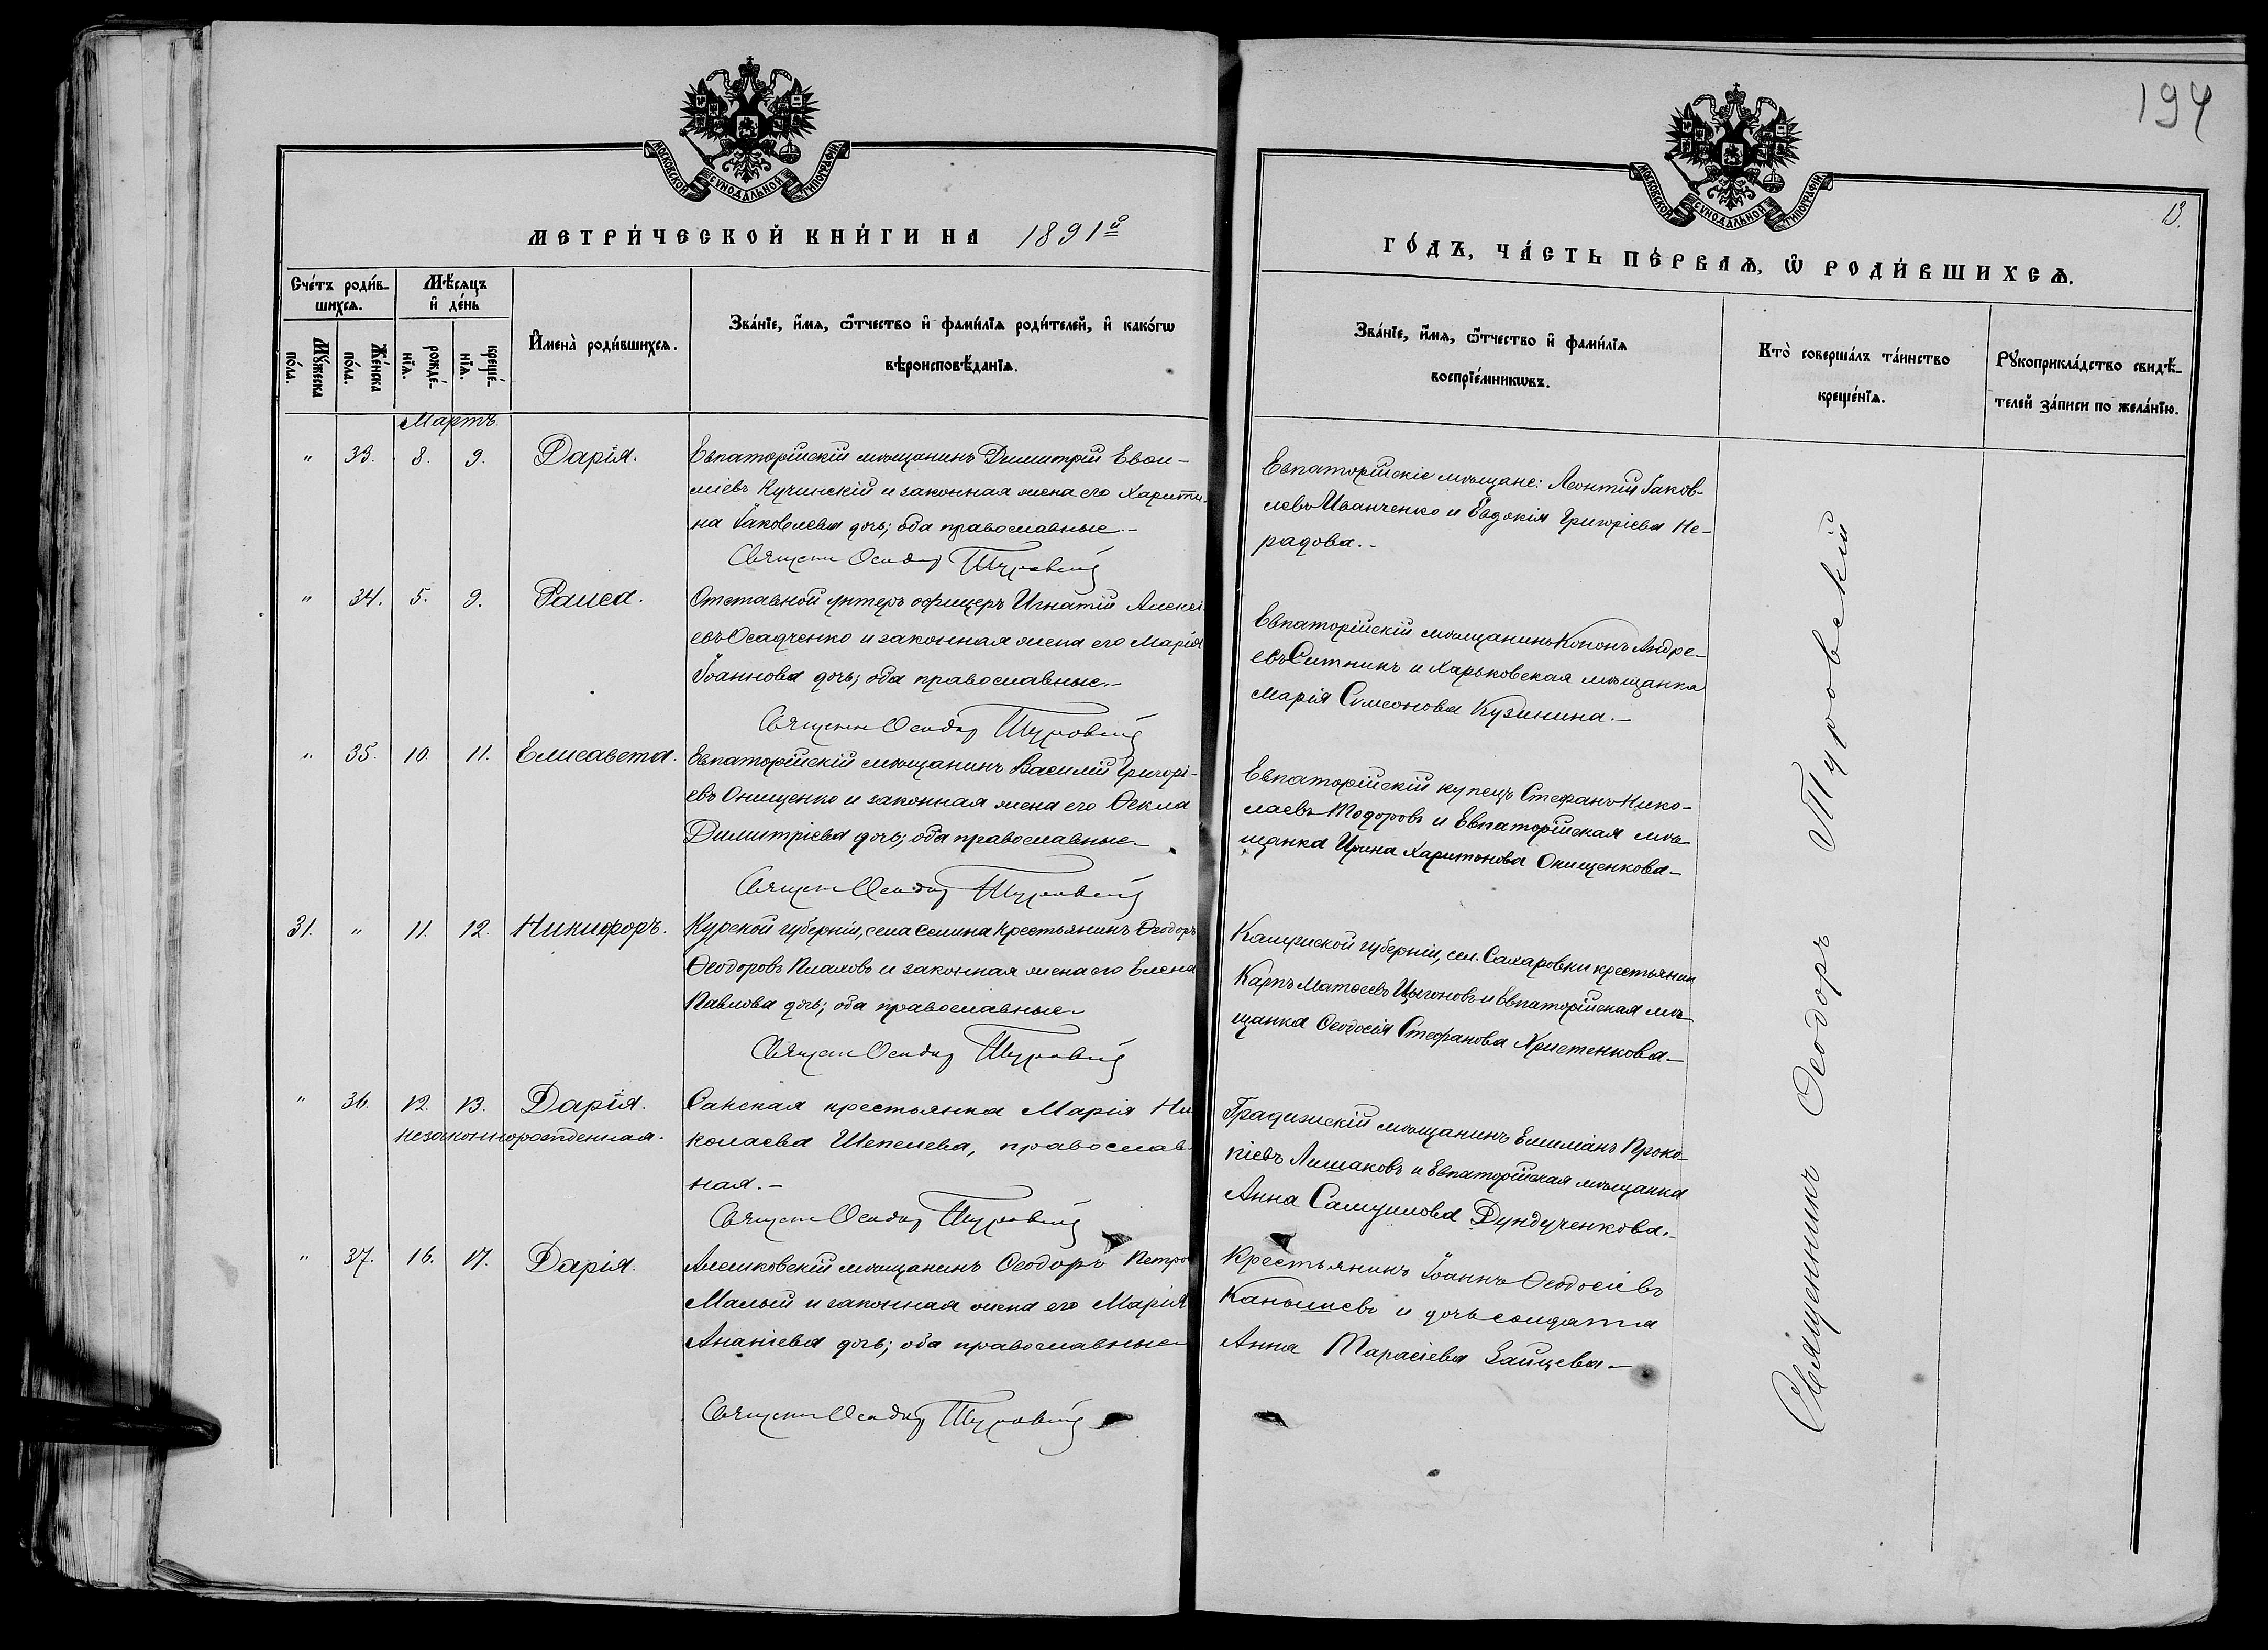 194
МОСКОВСКОЙ СѴНОДАЛЬНОЙ ТИПОГРАФІИ
МОСКОВСКОЙ СѴНОДАЛЬНОЙ ТИПОГРАФІИ
13.
МЕТРИ́ЧЕСКОЙ КНИ́ГИ НА 1891й
ГО́ДЪ, ЧА́СТЬ ПЕ́РВАѦ, Ѡ҆ РОДИ́ВШИХСѦ.
Сче́тъ роди́в-
шихсѧ.
Мꙋ́жеска
по́ла.
Же́нска
по́ла.
Мѣ́сяцъ
и҆ де́нь
рожде́-
нїѧ.
креще́-
нїѧ.
И҆мена̀ роди́вшихсѧ.
Зва́нїе, и҆́мѧ, ѻ҆́тчество и҆ фами́лїѧ роди́телей, и҆ како́гѡ
вѣроисповѣ́данїѧ.
Зва́нїе, и҆́мѧ, ѻ҆́тчество и҆ фами́лїѧ
воспрїе́мникѡвъ.
Кто̀ соверша́лъ та́инство
креще́нїѧ.
Рꙋкоприкла́дство свидѣ́-
телей за́писи по жела́нїю.
Мартъ.
" 33. 8. 9. Дарія.
Евпаторійскій мѣщанинъ Димитрій Евои-
міевъ Кучинскій и законная жена его Харити-
на Іаковлева дочь; оба православные.-
Священ Ѳеодор Туровскій
Евпаторійскіе мѣщане: Леонтій Іаков-
левъ Иванченко и Евдокія Григоріева Не-
радова.-
" 34. 5. 9. Раиса.
Отставной унтеръ офицеръ Игнатій Алексі-
евъ Осадченко и законная жена его Марія
Іоаннова дочь; оба православные.-
Священ Ѳеодор Туровскій
Евпаторійскій мѣщанинъ Кононъ Андре-
евъ Ситникъ и Харьковская мѣщанка
Марія Симеонова Кузинина.-
" 35. 10. 11. Елисавета.
Евпаторійскій мѣщанинъ Василій Григорі-
евъ Онищенко и законная жена его Ѳекла
Димитріева дочь; оба православные-
Священ Ѳеодор Туровскій
Евпаторійскій купецъ Стефанъ Нико-
лаевъ Тодоровъ и Евпаторійская мѣ-
щанка Ирина Харитонова Онищенкова-
31. " 11. 12. Никифоръ.
Курской губерніи, села Селина крестьянинъ Ѳеодоръ
Ѳеодоровъ Плаховъ и законная жена его Елена
Павлова дочь; оба православные-
Священ Ѳеодор Туровскій
Калужской губерніи, сел. Сахаровки крестьянин
Карпъ Матѳеевъ Цыгоновъ и Евпаторійская мѣ-
щанка Ѳеодосія Стефанова Христенкова-
" 36. 12. 13. Дарія.
незаконнорожденная.
Сакская крестьянка Марія Ни-
колаева Шепелева, православ-
ная.-
Священ Ѳеодор Туровскій
Градижскій мѣщанинъ Емиліанъ Проко-
піевъ Лишаковъ и Евпаторійская мѣщанка
Анна Самуилова Дундученкова.-
" 37. 16. 17. Дарія.
Алешковскій мѣщанинъ Ѳеодоръ Петров
Малый и законная жена его Марія
Ананіева дочь; оба православные-
Священ Ѳеодор Туровскій
Крестьянинъ Іоаннъ Ѳеодосіевъ
Канышевъ и дочь солдата
Анна Тарасіева Зайцева-
Священникъ Ѳеодоръ Туровскій